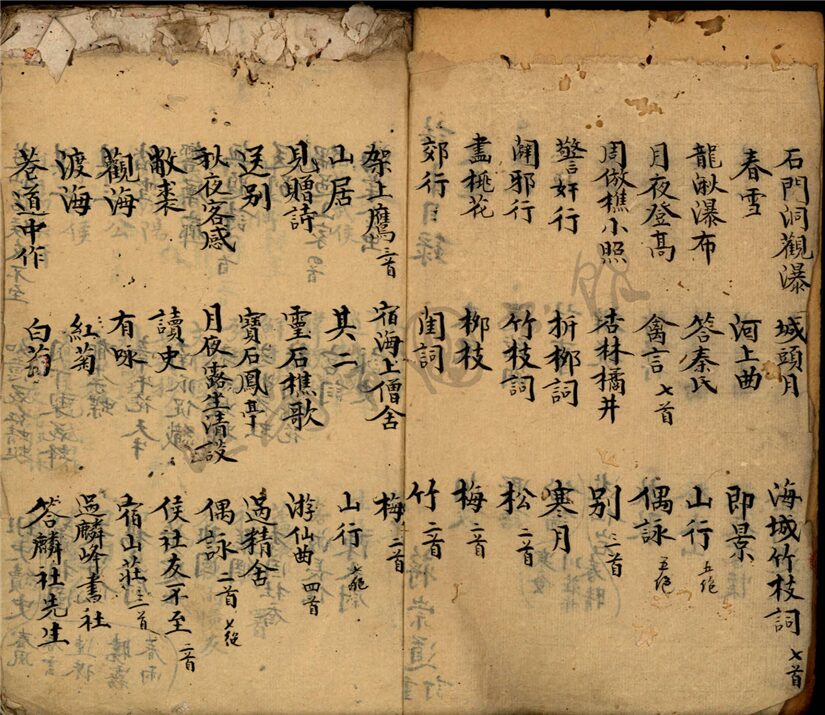 石門洞觀瀑 城頭月 海城竹枝詞 七首
春雪 河上曲 即景
龍湫瀑布 答秦氏 山行 五絕
月夜登高 禽言 七首 偶詠 五絕
周倣樵小照 杏林橘井 別 二首
警奸行 折柳詞 寒月
闢邪行 竹枝詞 松 二首
畫桃花 柳枝 梅 二首
郊行 閨詞 竹 二首
架上鷹 二首 宿海上僧舍 梅 二首
山居 其二 山行 七絕
見贈詩 靈石樵歌 游仙曲 四首
送別 寶石鳳亭 過精舍
秋夜客感 月夜露坐清談 偶詠 二首 七絕
敝裘 讀史 侯社友不至 二首
觀海 有咏 宿山莊 二首
渡海 紅菊 過麟峰書社
巷道中作 白菊 答麟社先生